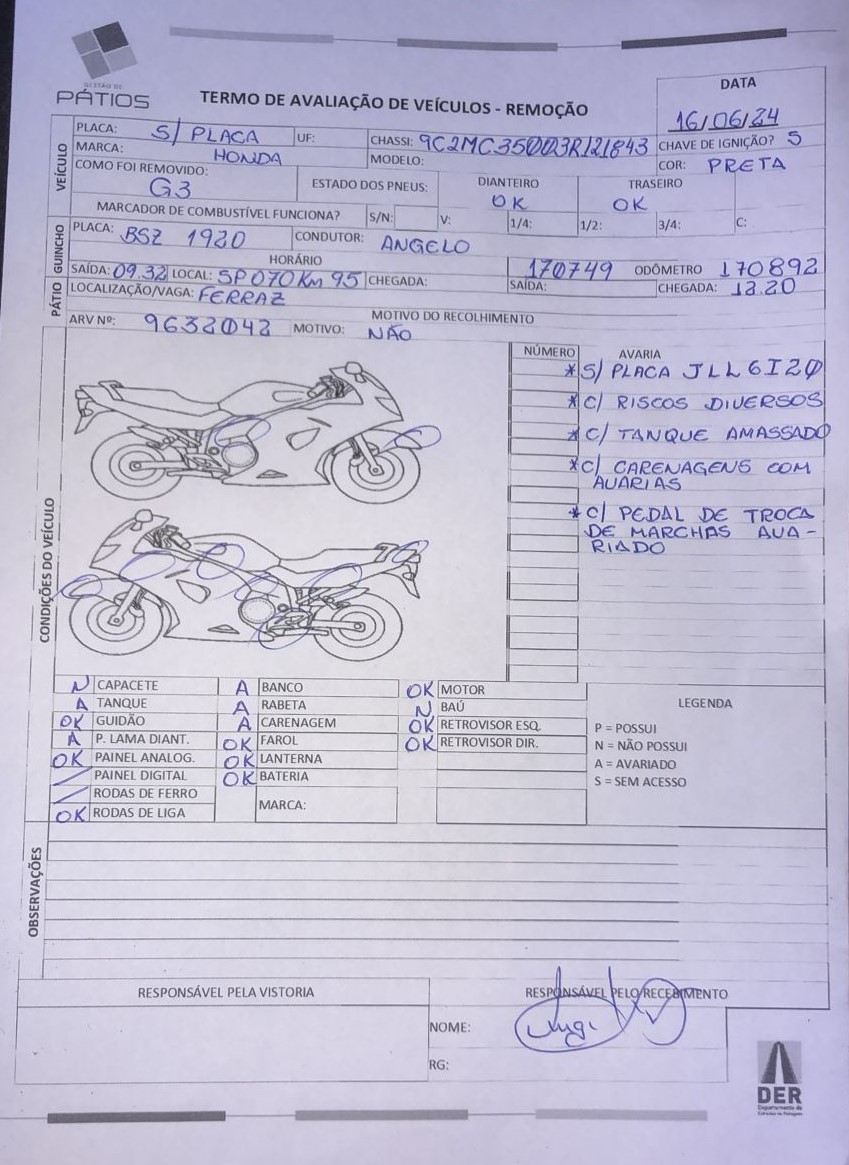 GESTÃO DE
PÁTIOS
TERMO DE AVALIAÇÃO DE VEÍCULOS - REMOÇÃO
DATA
16/06/24
VEÍCULO
PLACA: S/ PLACA UF: CHASSI: 9C2MC35003R121843 CHAVE DE IGNIÇÃO? S
MARCA: HONDA MODELO: COR: PRETA
COMO FOI REMOVIDO: G3 ESTADO DOS PNEUS: DIANTEIRO OK TRASEIRO OK
MARCADOR DE COMBUSTÍVEL FUNCIONA? S/N: V: 1/4: 1/2: 3/4: C:
GUINCHO
PLACA: BSZ 1920 CONDUTOR: ANGELO
HORÁRIO 170749 ODÔMETRO 170892
SAÍDA: 09.32 LOCAL: SP070 Km 95 CHEGADA: SAÍDA: CHEGADA: 12.20
PÁTIO
LOCALIZAÇÃO/VAGA: FERRAZ
MOTIVO DO RECOLHIMENTO
ARV Nº: 9632042 MOTIVO: NÃO
CONDIÇÕES DO VEÍCULO
NÚMERO AVARIA
*S/ PLACA JLL6I20
*C/ RISCOS DIVERSOS
*C/ TANQUE AMASSADO
*C/ CARENAGENS COM
AVARIAS
*C/ PEDAL DE TROCA
DE MARCHAS AVA-
RIADO
N CAPACETE A BANCO OK MOTOR
A TANQUE A RABETA N BAÚ
OK GUIDÃO A CARENAGEM OK RETROVISOR ESQ.
A P. LAMA DIANT. OK FAROL OK RETROVISOR DIR.
OK PAINEL ANALOG. OK LANTERNA
PAINEL DIGITAL OK BATERIA
RODAS DE FERRO MARCA:
OK RODAS DE LIGA
LEGENDA
P = POSSUI
N = NÃO POSSUI
A = AVARIADO
S = SEM ACESSO
OBSERVAÇÕES
RESPONSÁVEL PELA VISTORIA RESPONSÁVEL PELO RECEBIMENTO
NOME:
RG:
DER
Departamento de
Estradas de Rodagem